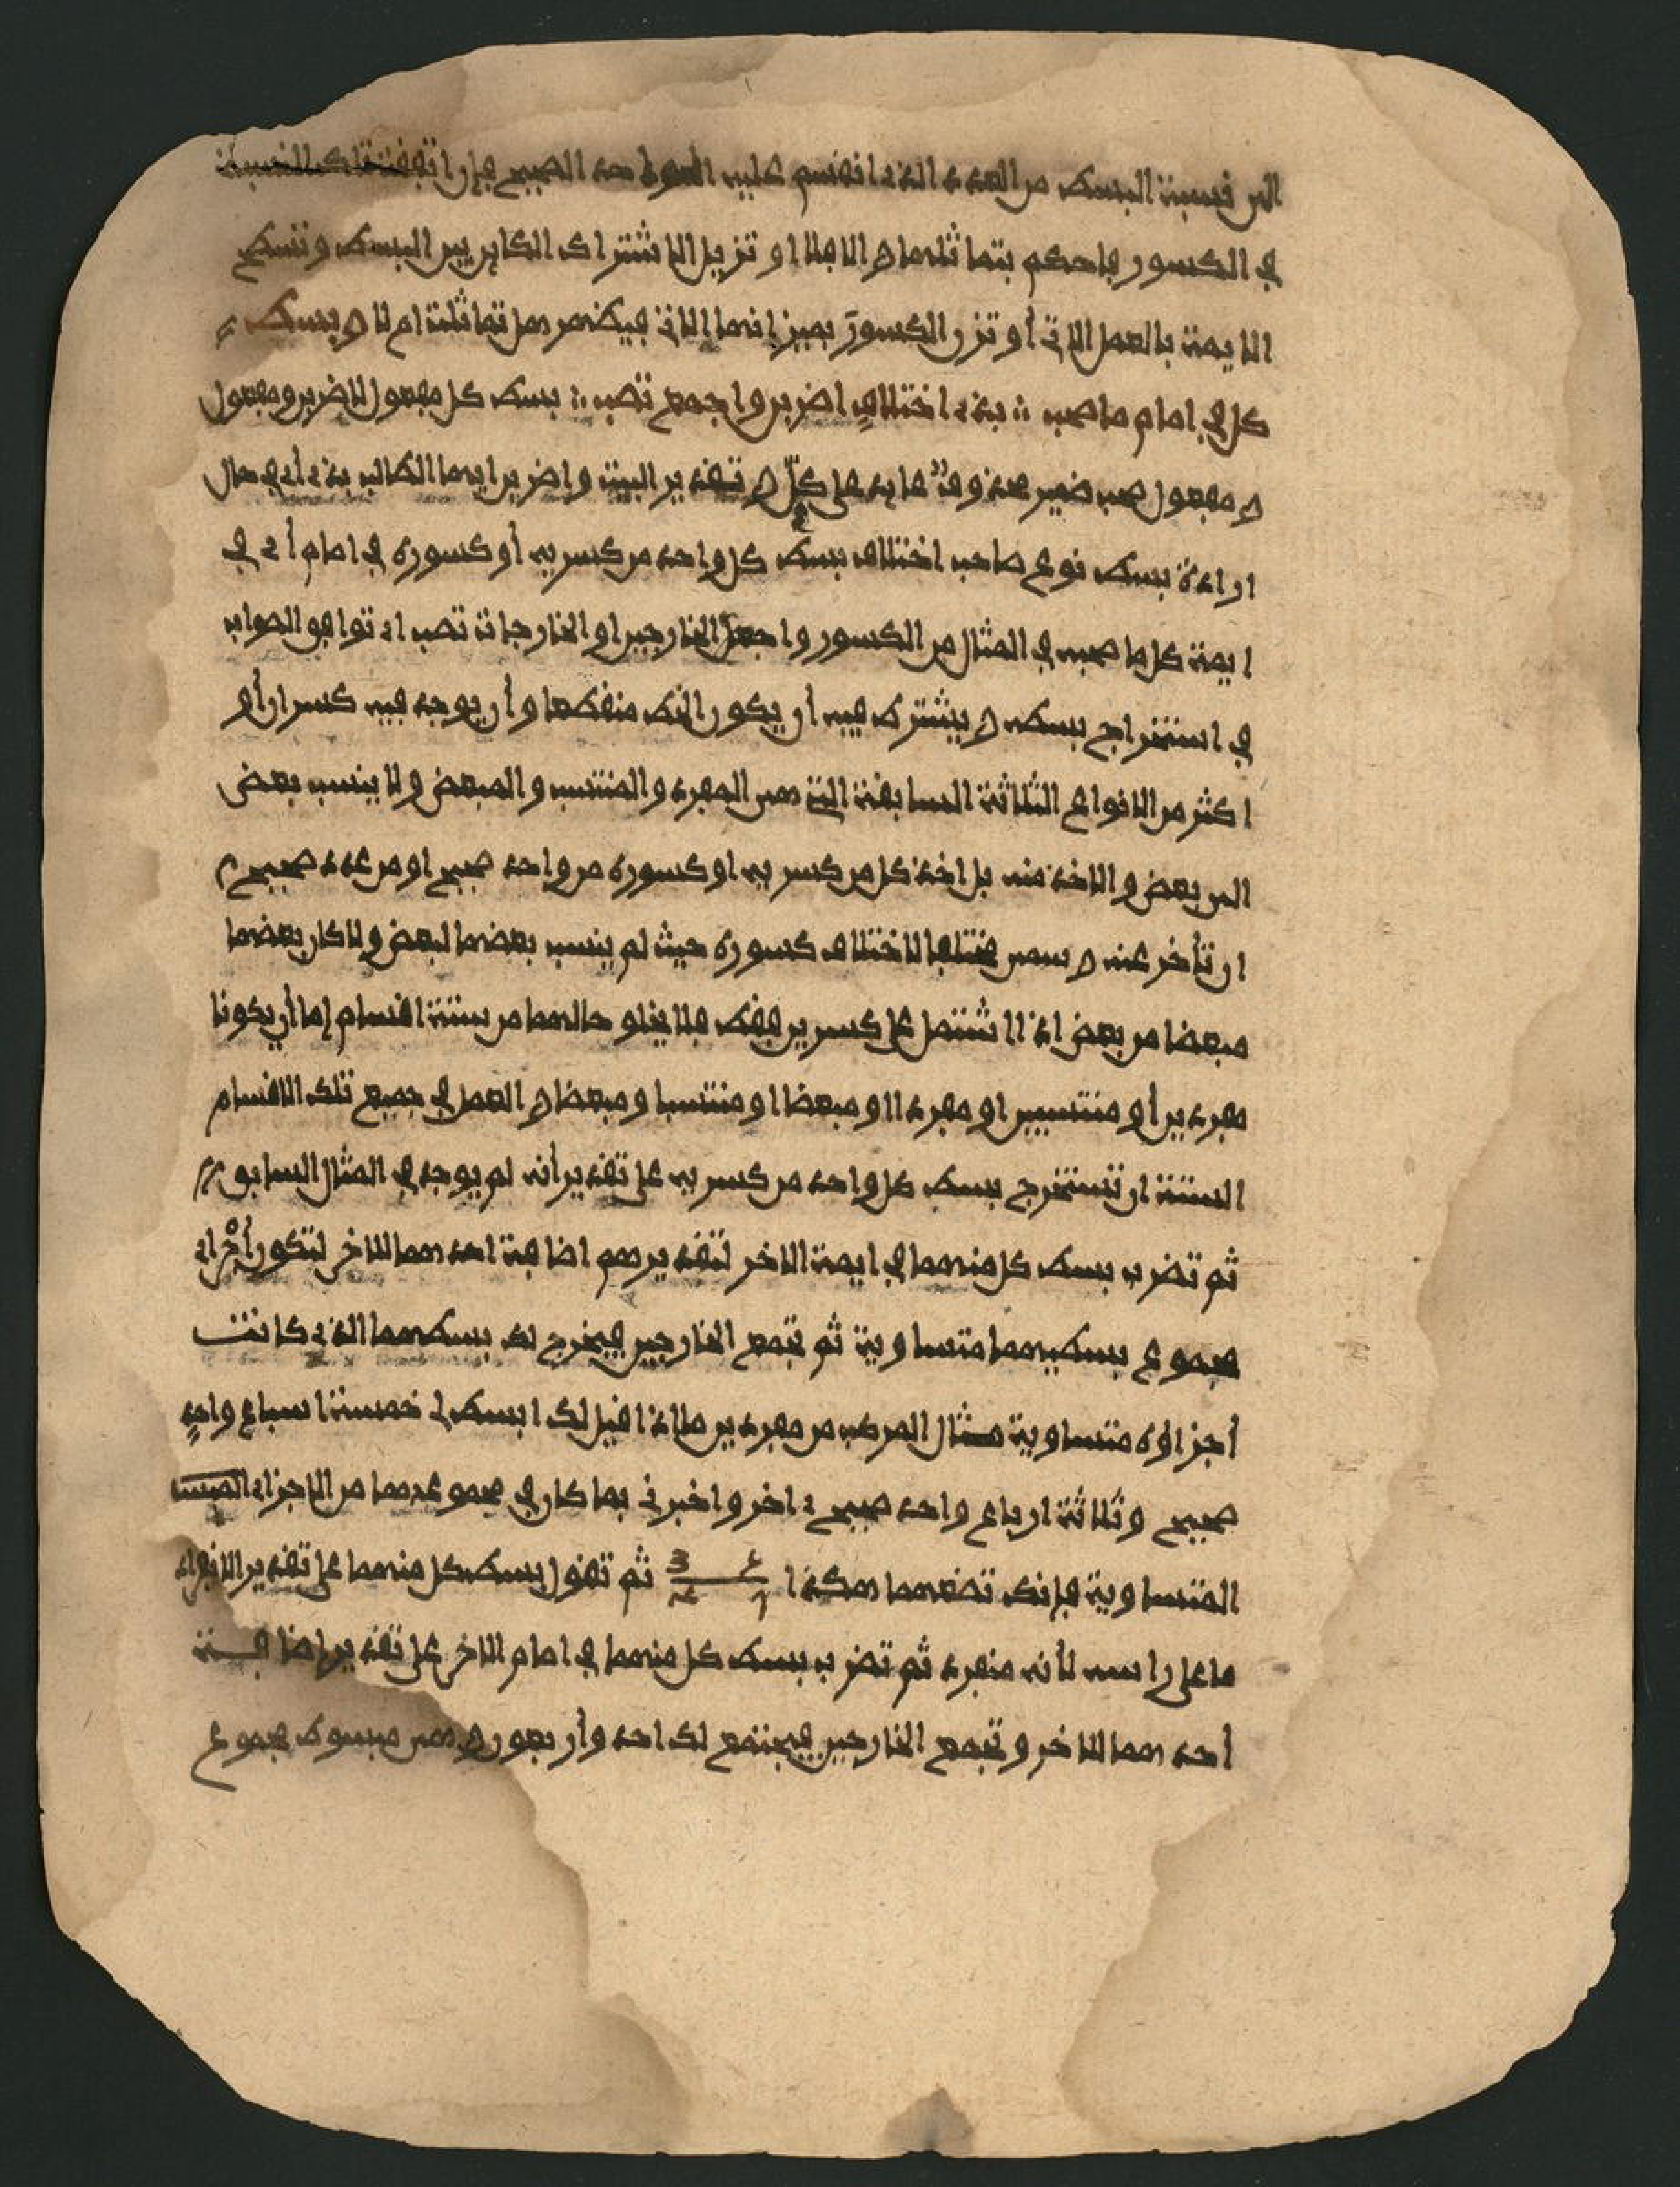 الى نسبة البسط من العدد الذي انقسم عليه الواحد الصحيح فإن اتفقت تلك النسبة
في الكسور فاحكم بتماثلهما والا فلا او تزيل الاشتراك الكاين بين البسط وتسطح
الايمة بالعمل الاتي أو تزن الكسور بميزانهما الاتي فيظهر هل تماثلت ام لا وبسط
كل في امام ما صحب ؞ بذي اختلاف اضربن واجمع تصب ؞ بسط كل مفعول لاضربن ومفعول
صحب ضمير محذوف عايد على كل تقدير البيت واضرب ايها الطالب بذي أي في حال
ارادة بسط نوع صاحب اختلاف بسط كل واحد من كسريه أو كسوره في امام أي في
ايمة كل ما صحبه في المثال من الكسور واجمع الخارجين او الخارجات تصب اي توافق الصواب
في استخراج بسطه ويشترط فيه أن يكون الخط منقطعا وأن يوجد فيه كسران أو
اكثر من الانواع الثلاثة السابقة التي هي المفرد والمنتسب والمبعض ولا ينسب بعض
الى بعض والاخذ منه بل اخذ كل من كسريه او كسوره من واحد صحيح او من عدد صحيح
ان تأخر عنه وسمي مختلفا لاختلاف كسوره حيث لم ينسب بعضها لبعض ولا كان بعضها
مبعضا من بعض اذا اشتمل على كسرين فقط فلا يخلو حالهما من ستة اقسام إما أن يكونا
مفردين أو منتسبين او مفردا او مبعضا او منتسبا ومبعضا والعمل في جميع تلك الاقسام
الستة ان تستخرج بسط كل واحد من كسريه على تقدير أنه لم يوجد في المثال السابق
ثم تضرب بسط كل منهما في ايمة الاخر لتقديرهم اضافة احدهما للاخر لتكون أجزاء
مجموع بسطيهما متساوية ثم تجمع الخارجين فيخرج لك بسطهما الذي كانت
أجزاؤه متساوية مثال المركب من مفردين ما اذا قيل لك ابسط لي خمسة اسباع واحد
صحيح وثلاثة ارباع واحد صحيح اخر واخبرني بما كان في مجموعهما من الاجزاء
المتساوية فإنك تضعهما هكذا ثم تقول بسط كل منهما على تقدير الانفراد
ما على راسه لأنه منفرد ثم تضرب بسط كل منهما في امام الاخر على تقدير إضافة
أحدهما للاخر وتجمع الخارجين فيجتمع لك احد وأربعون وهي مبسوط مجموع